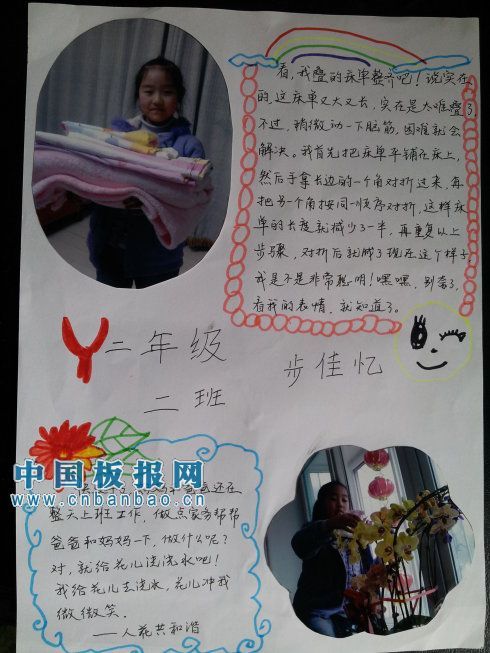 看，我叠的床单整齐吧！说实在
的，这床单又大又长，实在是太难叠了
不过，稍微动一下脑筋，困难就会
解决。我首先把床单平铺在床上，
然后手拿长边的一个角对折过来，再
把另一个角按同一顺序对折，这样床
单的长度就减少了一半，再重复以上
步骤，对折后就成了现在这个样子
我是不是非常聪明！嘿嘿，别夸了，
看我的表情，就知道了。
二年级
二班
步佳忆
中国板报网
www.cnbanbao.cn
爸还在
整天上班工作，做点家务帮帮
爸爸和妈妈一下，做什么呢？
对，就给花儿浇浇水吧！
我给花儿去浇水，花儿冲我
微微笑。
——人花共和谐